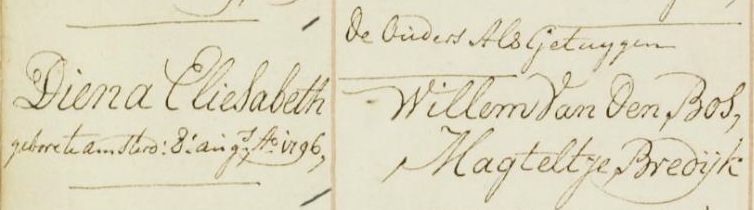 De Ouders Als Getuygen
Diena Eliesabeth
gebore te amsterd: 8: augs Ao 1796,
Willem Van Den Bos,
Magteltje Bredijk